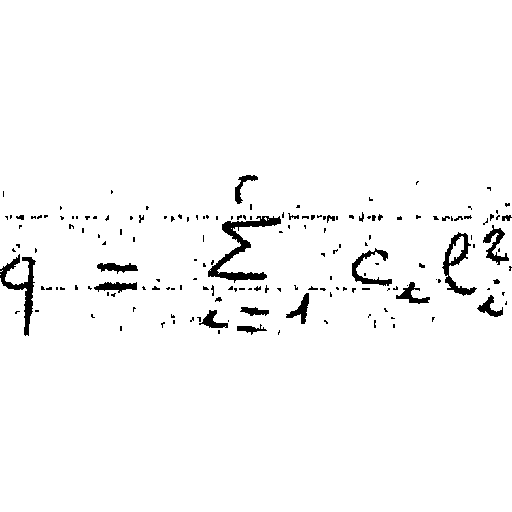 q = \sum_{i=1}^{r} c_i l_i^2